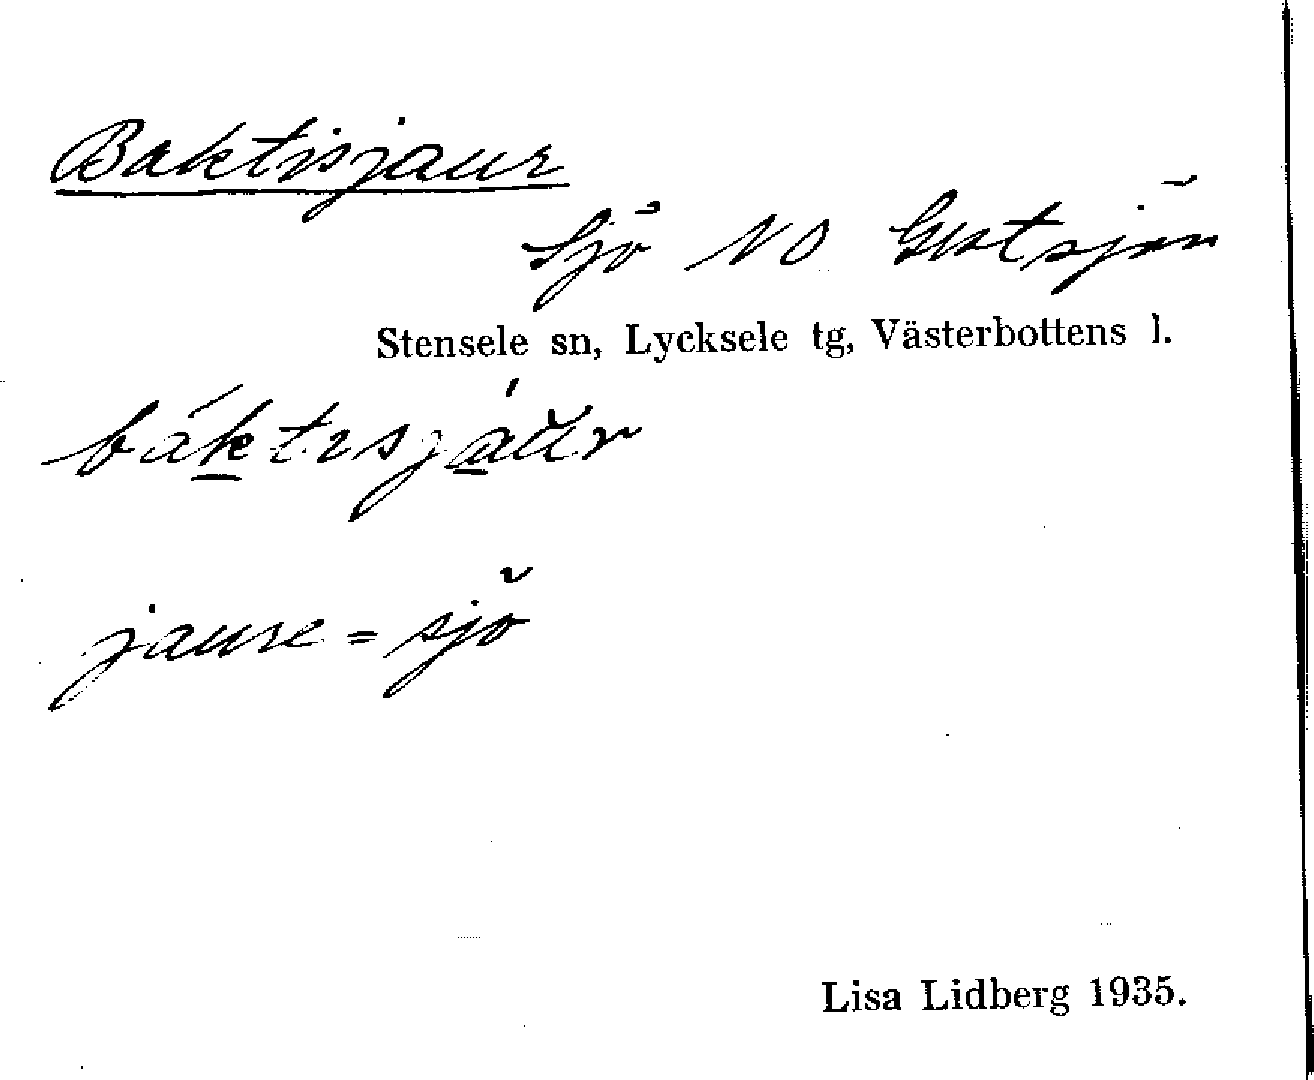 Baktisjaur
Sjö NO Gestsjön
Stensele sn, Lycksele tg, Västerbottens l.
jaure = sjö
Lisa Lidberg 1935.